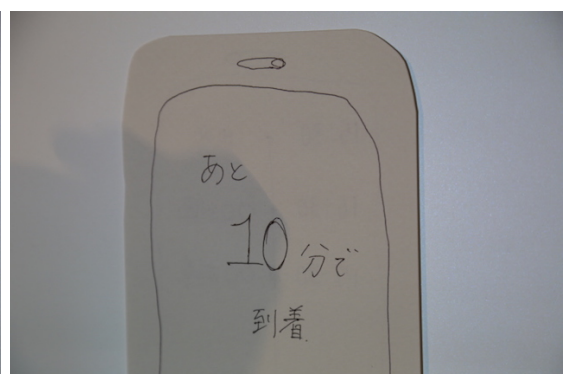 あと
10分で
到着